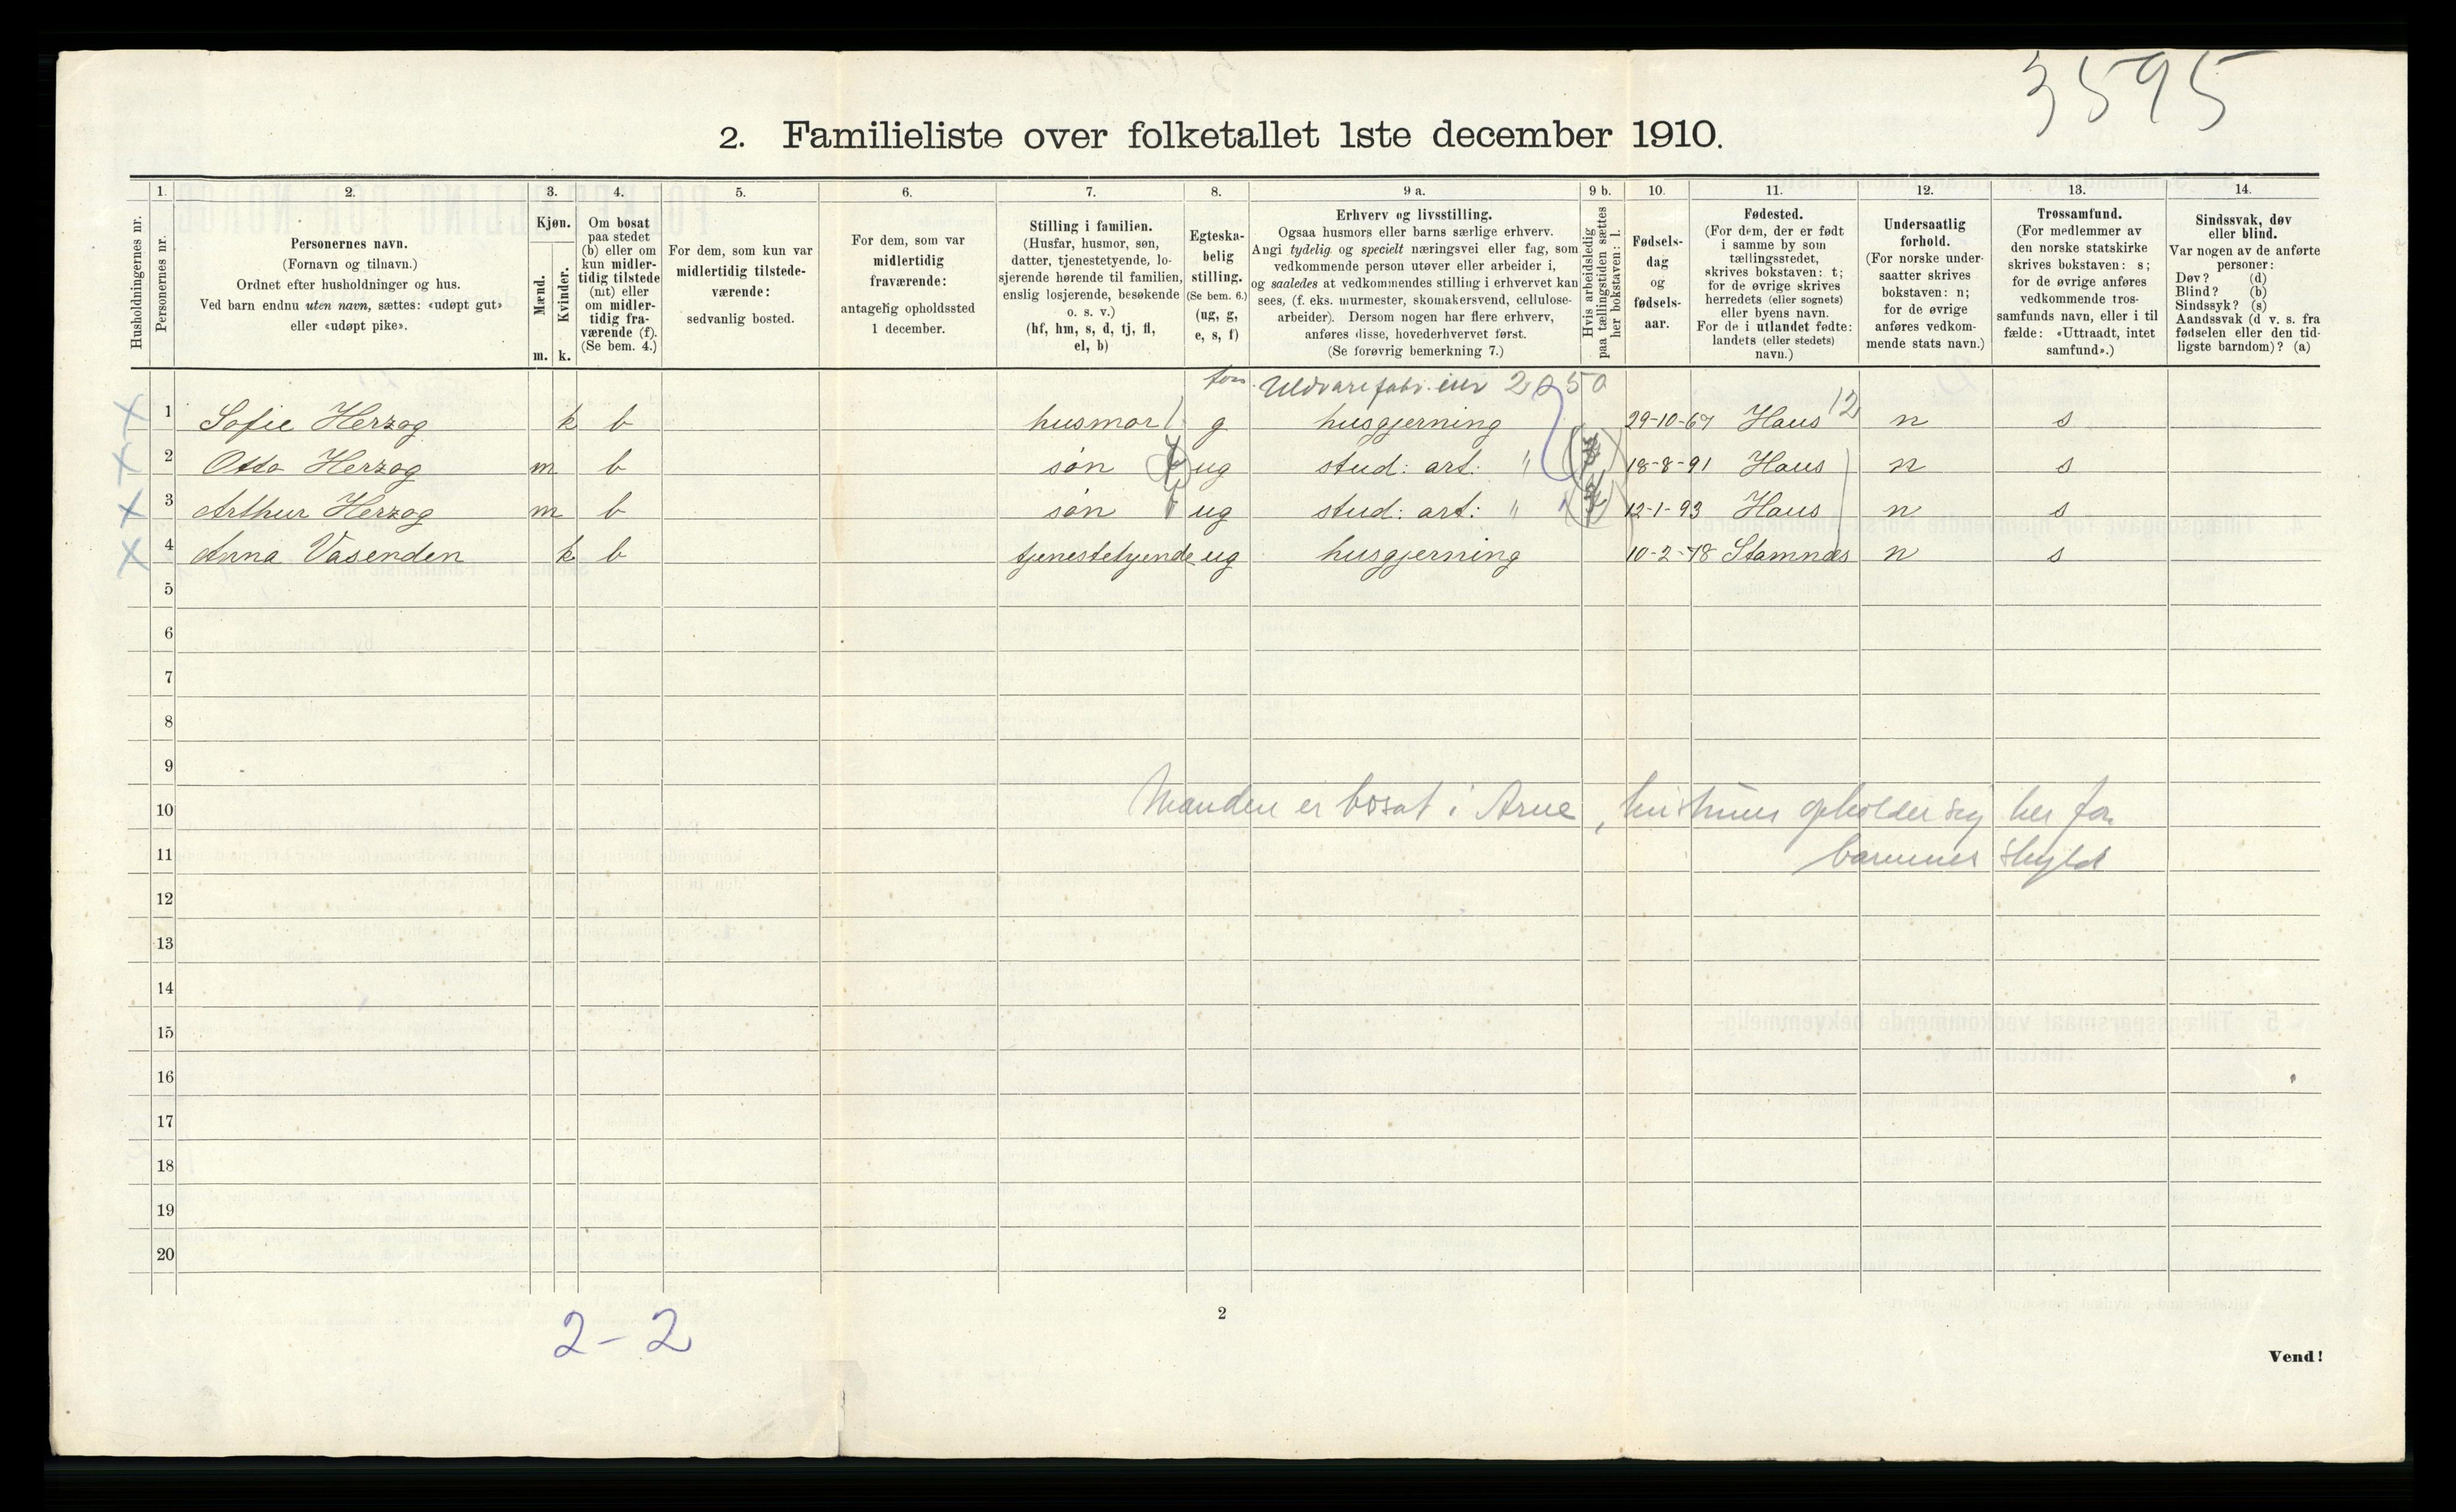 3595
2. Familieliste over folketallet 1ste december 1910.
Husholdningernes nr.
1. Personernes nr.
2. Personernes navn. (Fornavn og tilnavn.) Ordnet efter husholdninger og hus. Ved barn endnu uten navn, sættes: «udøpt gut» eller «udøpt pike».
3. Kjøn. Mænd. m. Kvinder. k.
4. Om bosat paa stedet (b) eller om kun midlertidig tilstede (mt) eller om midlertidig fraværende (f). (Se bem. 4.)
5. For dem, som kun var midlertidig tilstedeværende: sedvanlig bosted.
6. For dem, som var midlertidig fraværende: antagelig opholdssted 1 december.
7. Stilling i familien. (Husfar, husmor, søn, datter, tjenestetyende, losjerende hørende til familien, enslig losjerende, besøkende o. s. v.) (hf, hm, s, d, tj, fl, el, b)
8. Egteskabelig stilling. (Se bem. 6.) (ug, g, e, s, f)
9 a. Erhverv og livsstilling. Ogsaa husmors eller barns særlige erhverv. Angi tydelig og specielt næringsvei eller fag, som vedkommende person utøver eller arbeider i, og saaledes at vedkommendes stilling i erhvervet kan sees, (f. eks. murmester, skomakersvend, cellulosearbeider). Dersom nogen har flere erhverv, anføres disse, hovederhvervet først. (Se forøvrig bemerkning 7.)
9 b. Hvis arbeidsledig paa tællingstiden sættes her bokstaven: l.
10. Fødselsdag og fødselsaar.
11. Fødested. (For dem, der er født i samme by som tællingsstedet, skrives bokstaven: t; for de øvrige skrives herredets (eller sognets) eller byens navn. For de i utlandet fødte: landets (eller stedets) navn.)
12. Undersaatlig forhold. (For norske undersaatter skrives bokstaven: n; for de øvrige anføres vedkommende stats navn.)
13. Trossamfund. (For medlemmer av den norske statskirke skrives bokstaven: s; for de øvrige anføres vedkommende trossamfunds navn, eller i tilfælde: «Uttraadt, intet samfund».)
14. Sindssvak, døv eller blind. Var nogen av de anførte personer: Døv? (d) Blind? (b) Sindssyk? (s) Aandssvak (d v. s. fra fødselen eller den tidligste barndom)? (a)
Uldvarefabr. 2050
1 Sofie Herzog k b husmor g husgjerning 29-10-67 Haus 12 n s
2 Otto Herzog m b søn ug stud: art: " 18-8-91 Haus n s
3 Arthur Herzog m b søn ug stud: art: " 12-1-93 Haus n s
4 Anna Vasenden k b tjenestetyende ug husgjerning 10-2-78 Stamnæs n s
5
6
7
8
9
10 Manden er bosat i Arne, hustruen opholder sig her for
11 barnenes skyld
12
13
14
15
16
17
18
19
20
2 - 2
2
Vend!